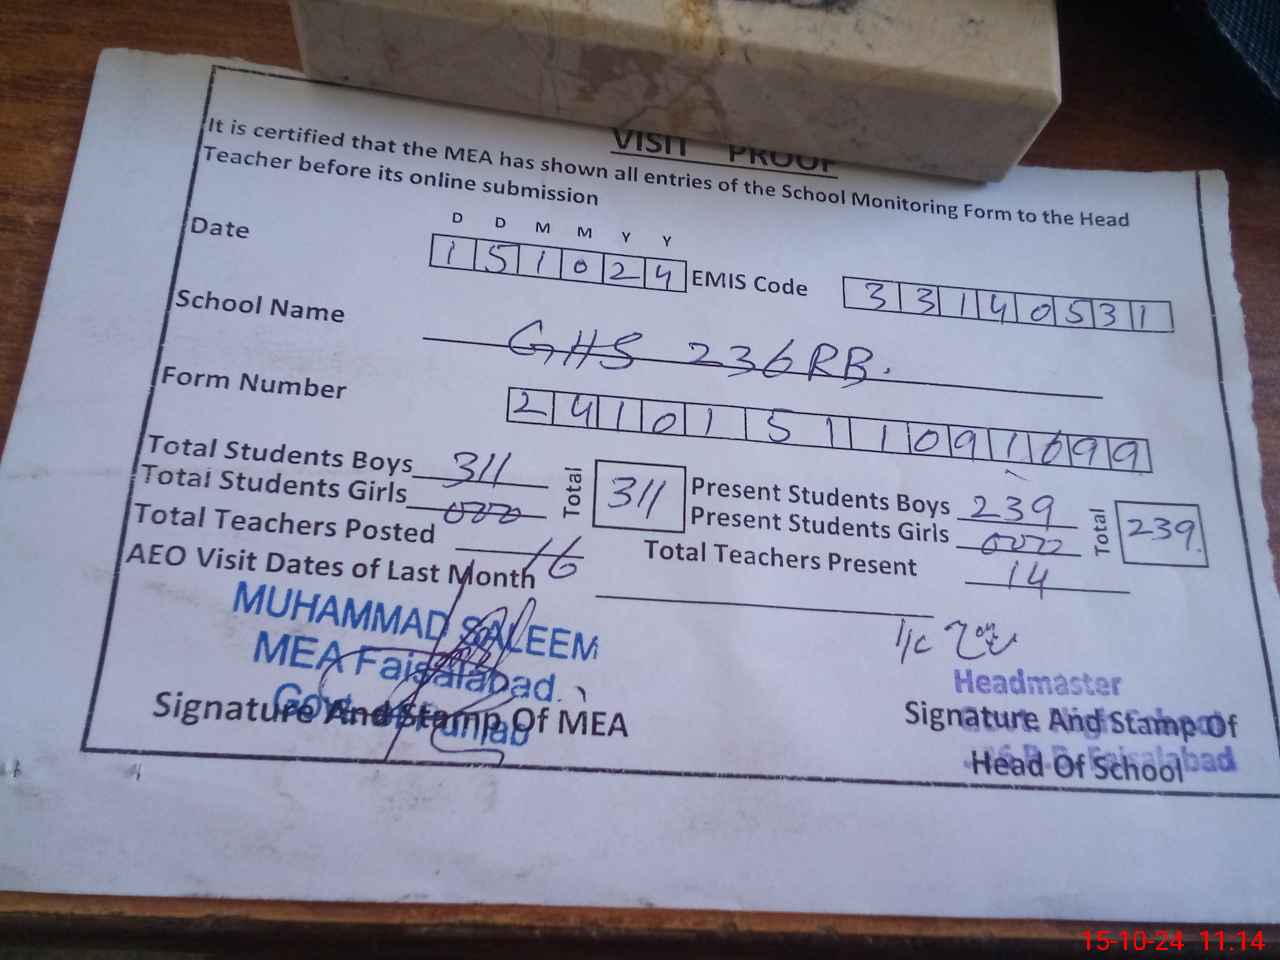 VISIT PROOF
It is certified that the MEA has shown all entries of the School Monitoring Form to the Head
Teacher before its online submission
D D M M Y Y
Date 151024 EMIS Code 33140531
School Name GHS 236RB.
Form Number 24101511091699
Total Students Boys 311 Total 311 Present Students Boys 239 Total 239.
Total Students Girls 000 Present Students Girls 000
Total Teachers Posted 16 Total Teachers Present 14
AEO Visit Dates of Last Month
MUHAMMAD SALEEM
MEA Faisalabad.
Govt. of Punjab
Signature And Stamp Of MEA
I/C
Headmaster
Signature And Stamp Of
Faisalabad
Head Of School
15-10-24 11:14